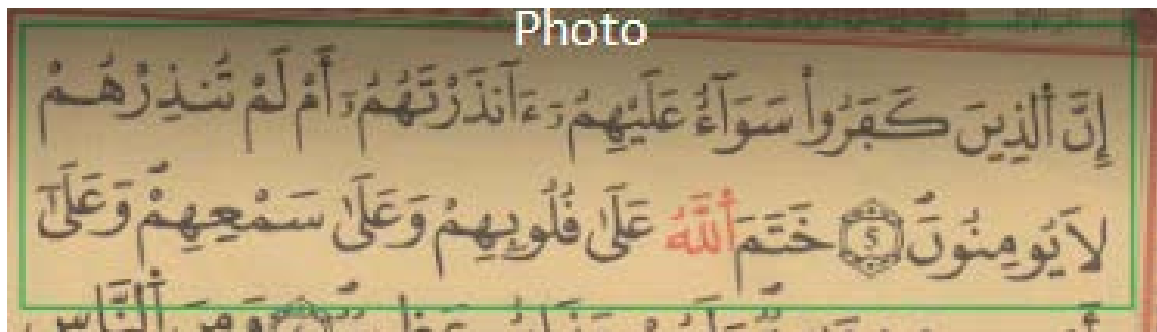 Photo
إِنَّ ٱلذِينَ كَفَرُوا۟ سَوَآءٌ عَلَيْهِمُۥٓ ءَآنذَرْتَهُمُۥٓ أَمْ لَمْ تُنذِرْهُمْ
لَا يُومِنُونَۖ 5 خَتَمَ ٱللَّهُ عَلَىٰ قُلُوبِهِمْ وَعَلَىٰ سَمْعِهِمْۖ وَعَلَىٰٓ
وَمِنَ ٱلنَّاسِ